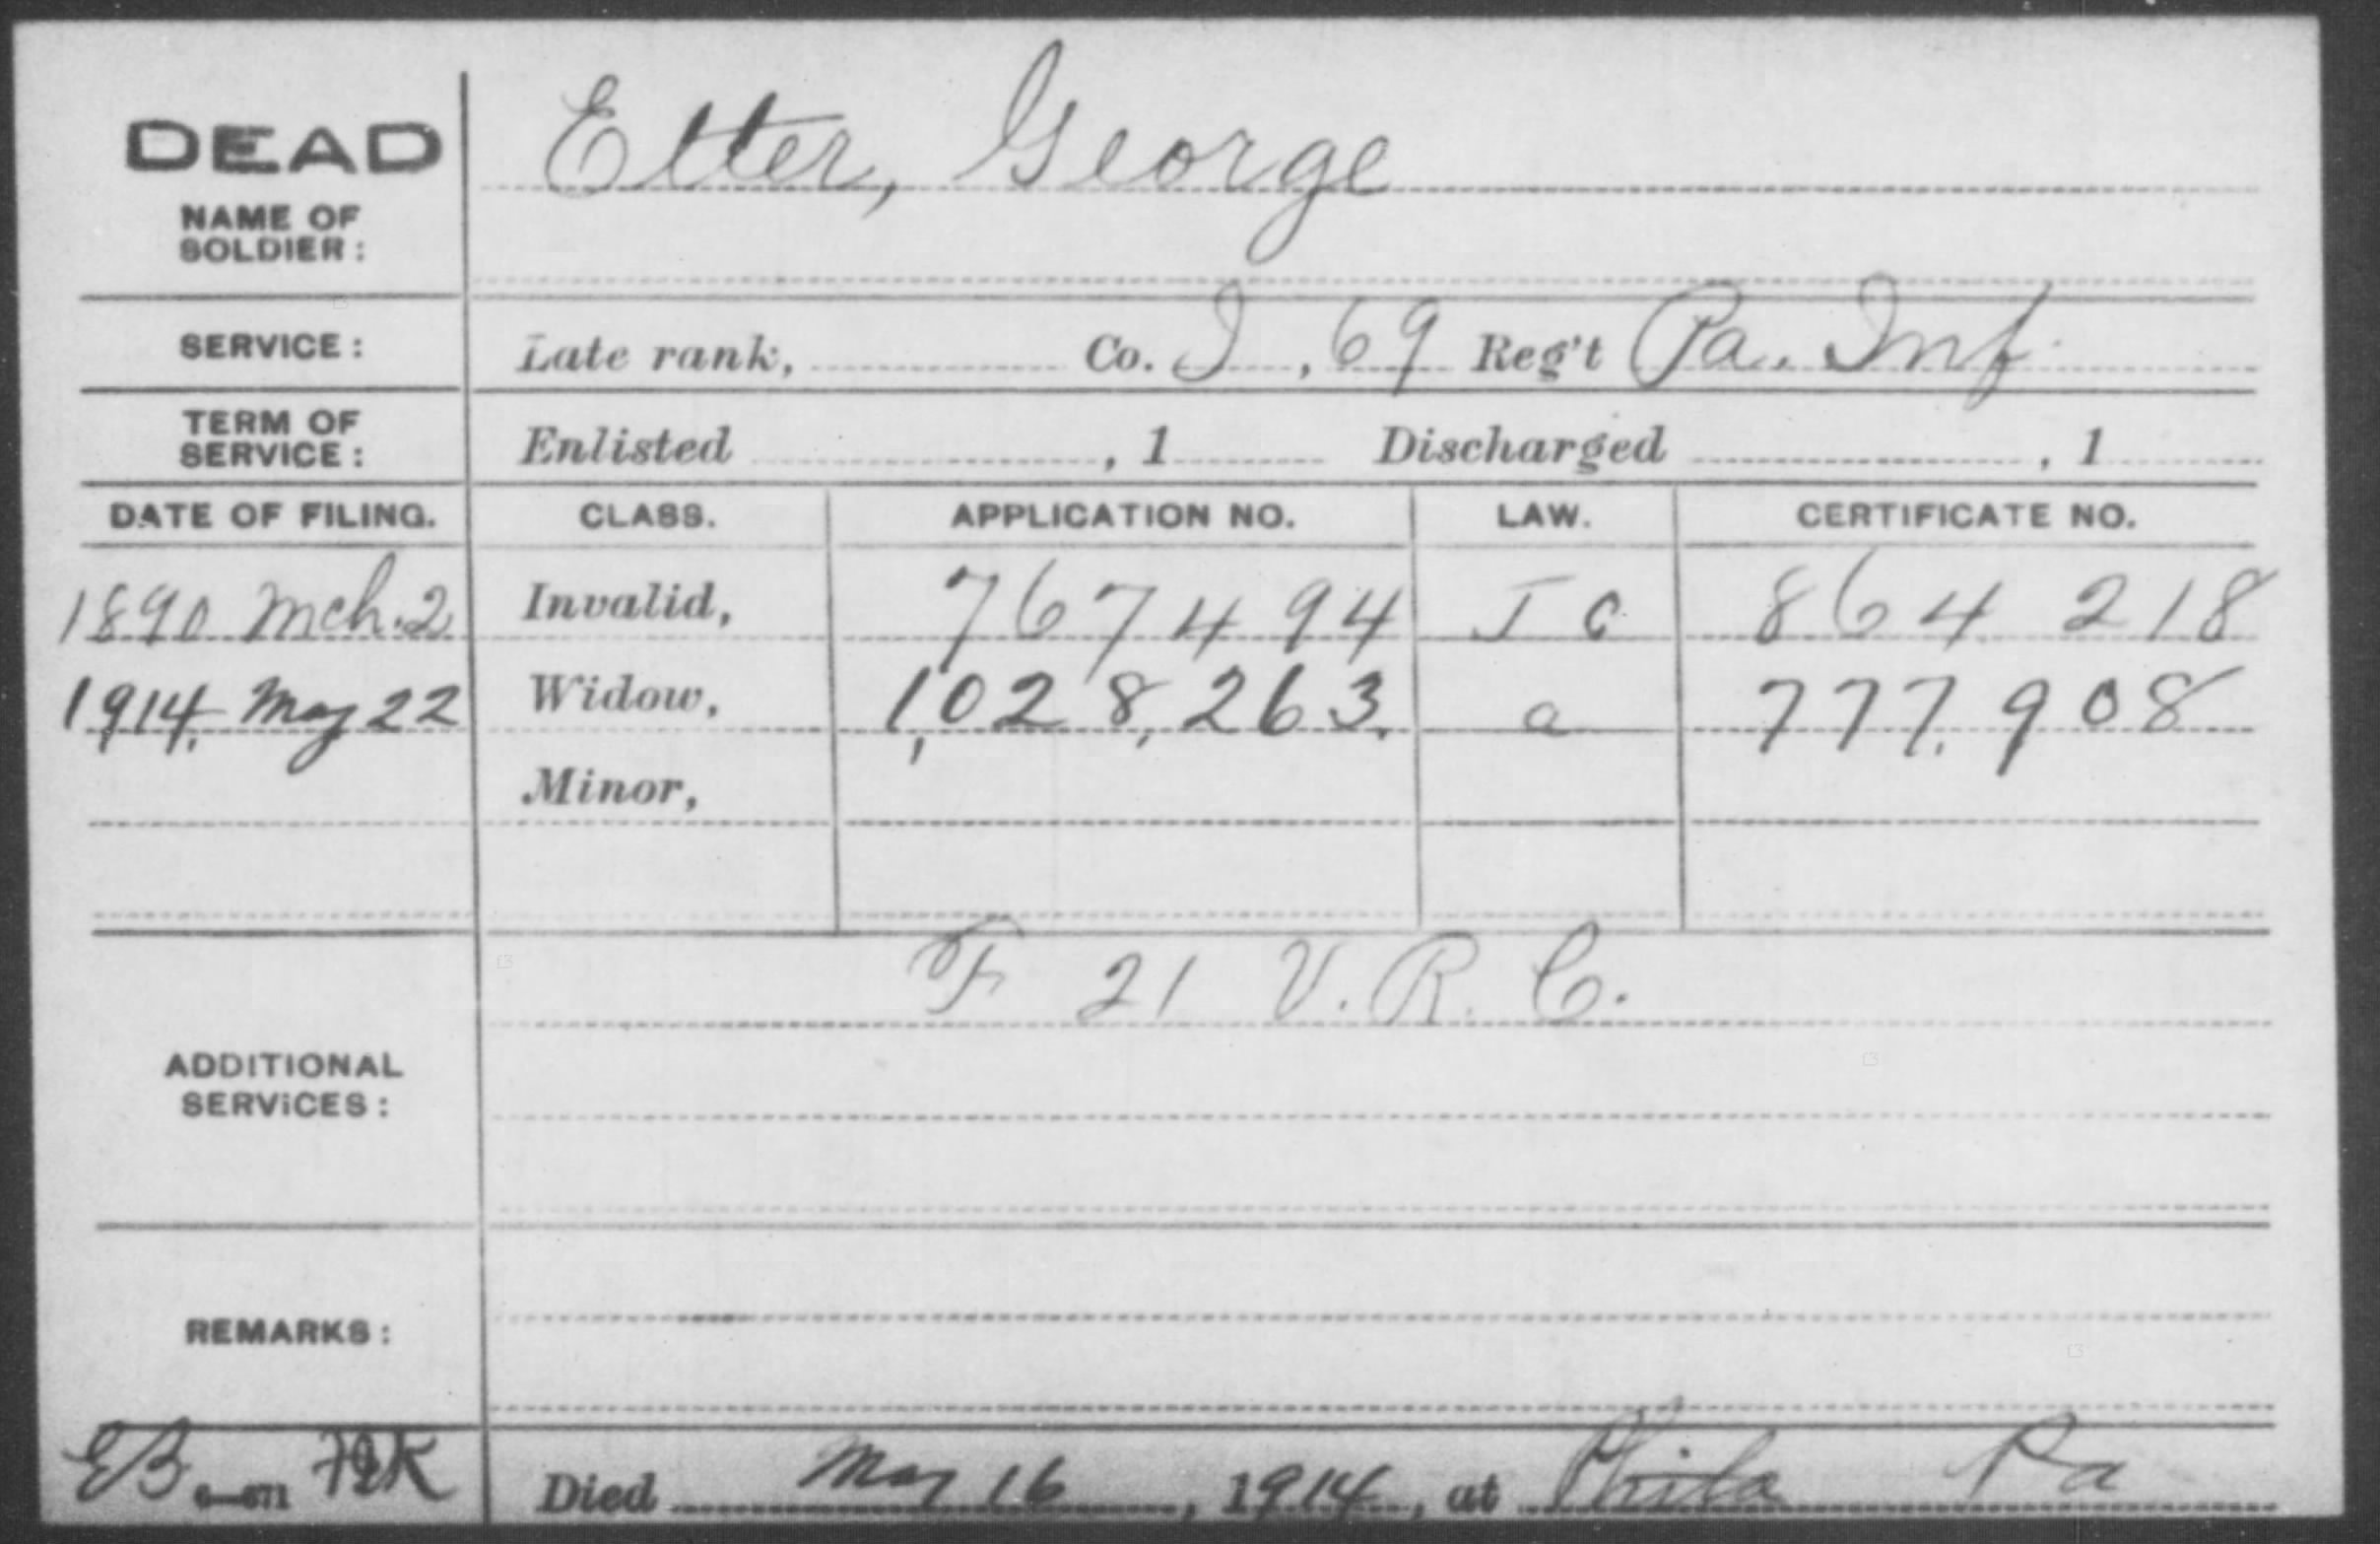 DEAD
Etter, George
NAME OF
SOLDIER:
SERVICE: Late rank, Co. I, 69 Reg't Pa. Inf.
TERM OF
SERVICE: Enlisted , 1 Discharged , 1
DATE OF FILING. CLASS. APPLICATION NO. LAW. CERTIFICATE NO.
1890 Mch. 2 Invalid, 767494 864 218
1914. May 22 Widow, 1,028,263. a 777,908
Minor,
F 21 V. R. C.
ADDITIONAL
SERVICES:
REMARKS:
EB 6—671 Died May 16, 1914, at Phila Pa